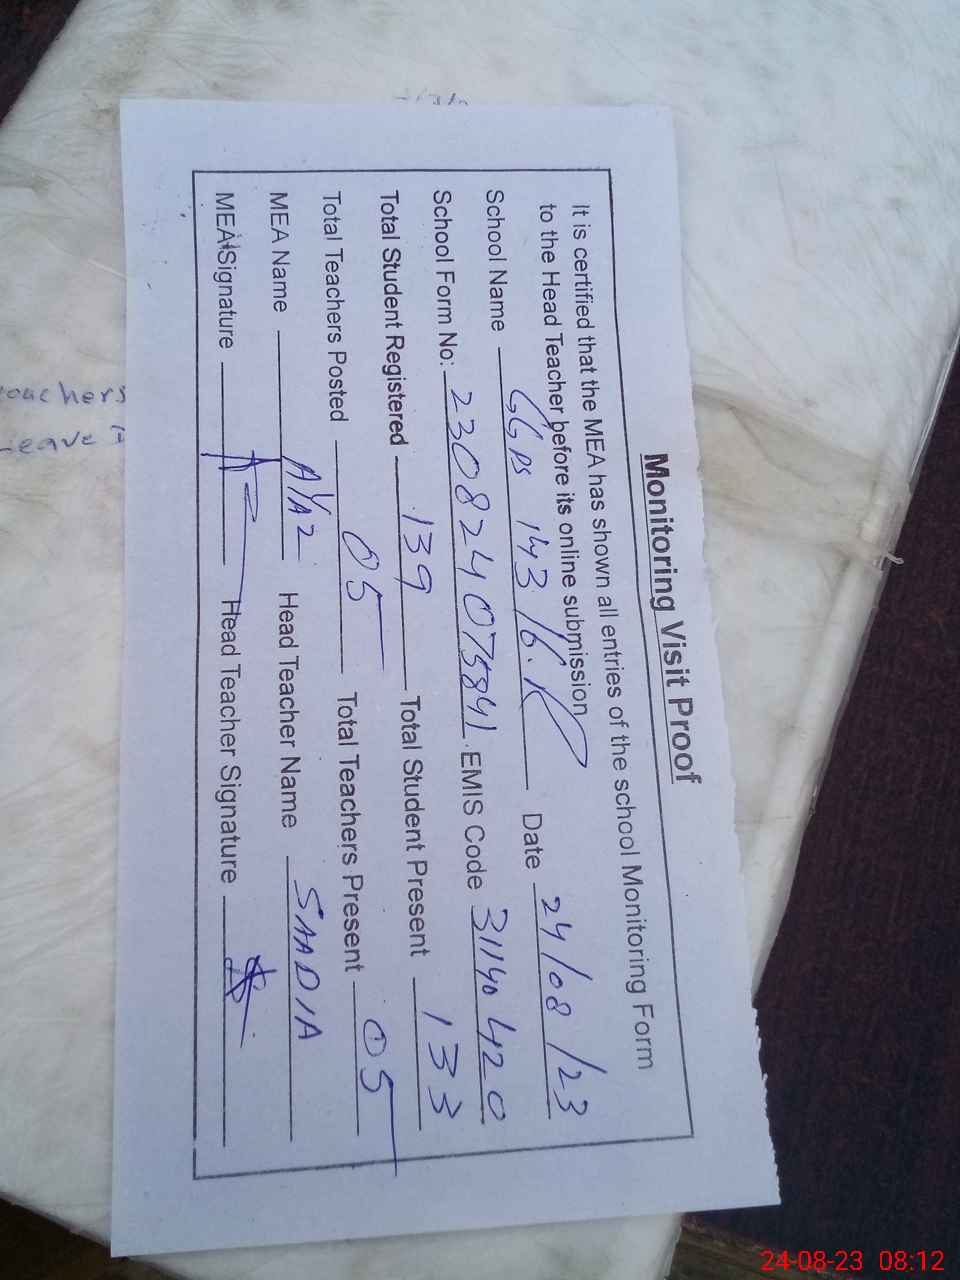 Monitoring Visit Proof
It is certified that the MEA has shown all entries of the school Monitoring Form
to the Head Teacher before its online submission
School Name GGPS 143/6.R Date 24/08/23
School Form No: 230824075841 EMIS Code 31140420
Total Student Registered 139 Total Student Present 133
Total Teachers Posted 05 Total Teachers Present 05
MEA Name AYAZ Head Teacher Name SAADIA
MEA Signature Head Teacher Signature
eachers
Leave
24-08-23 08:12